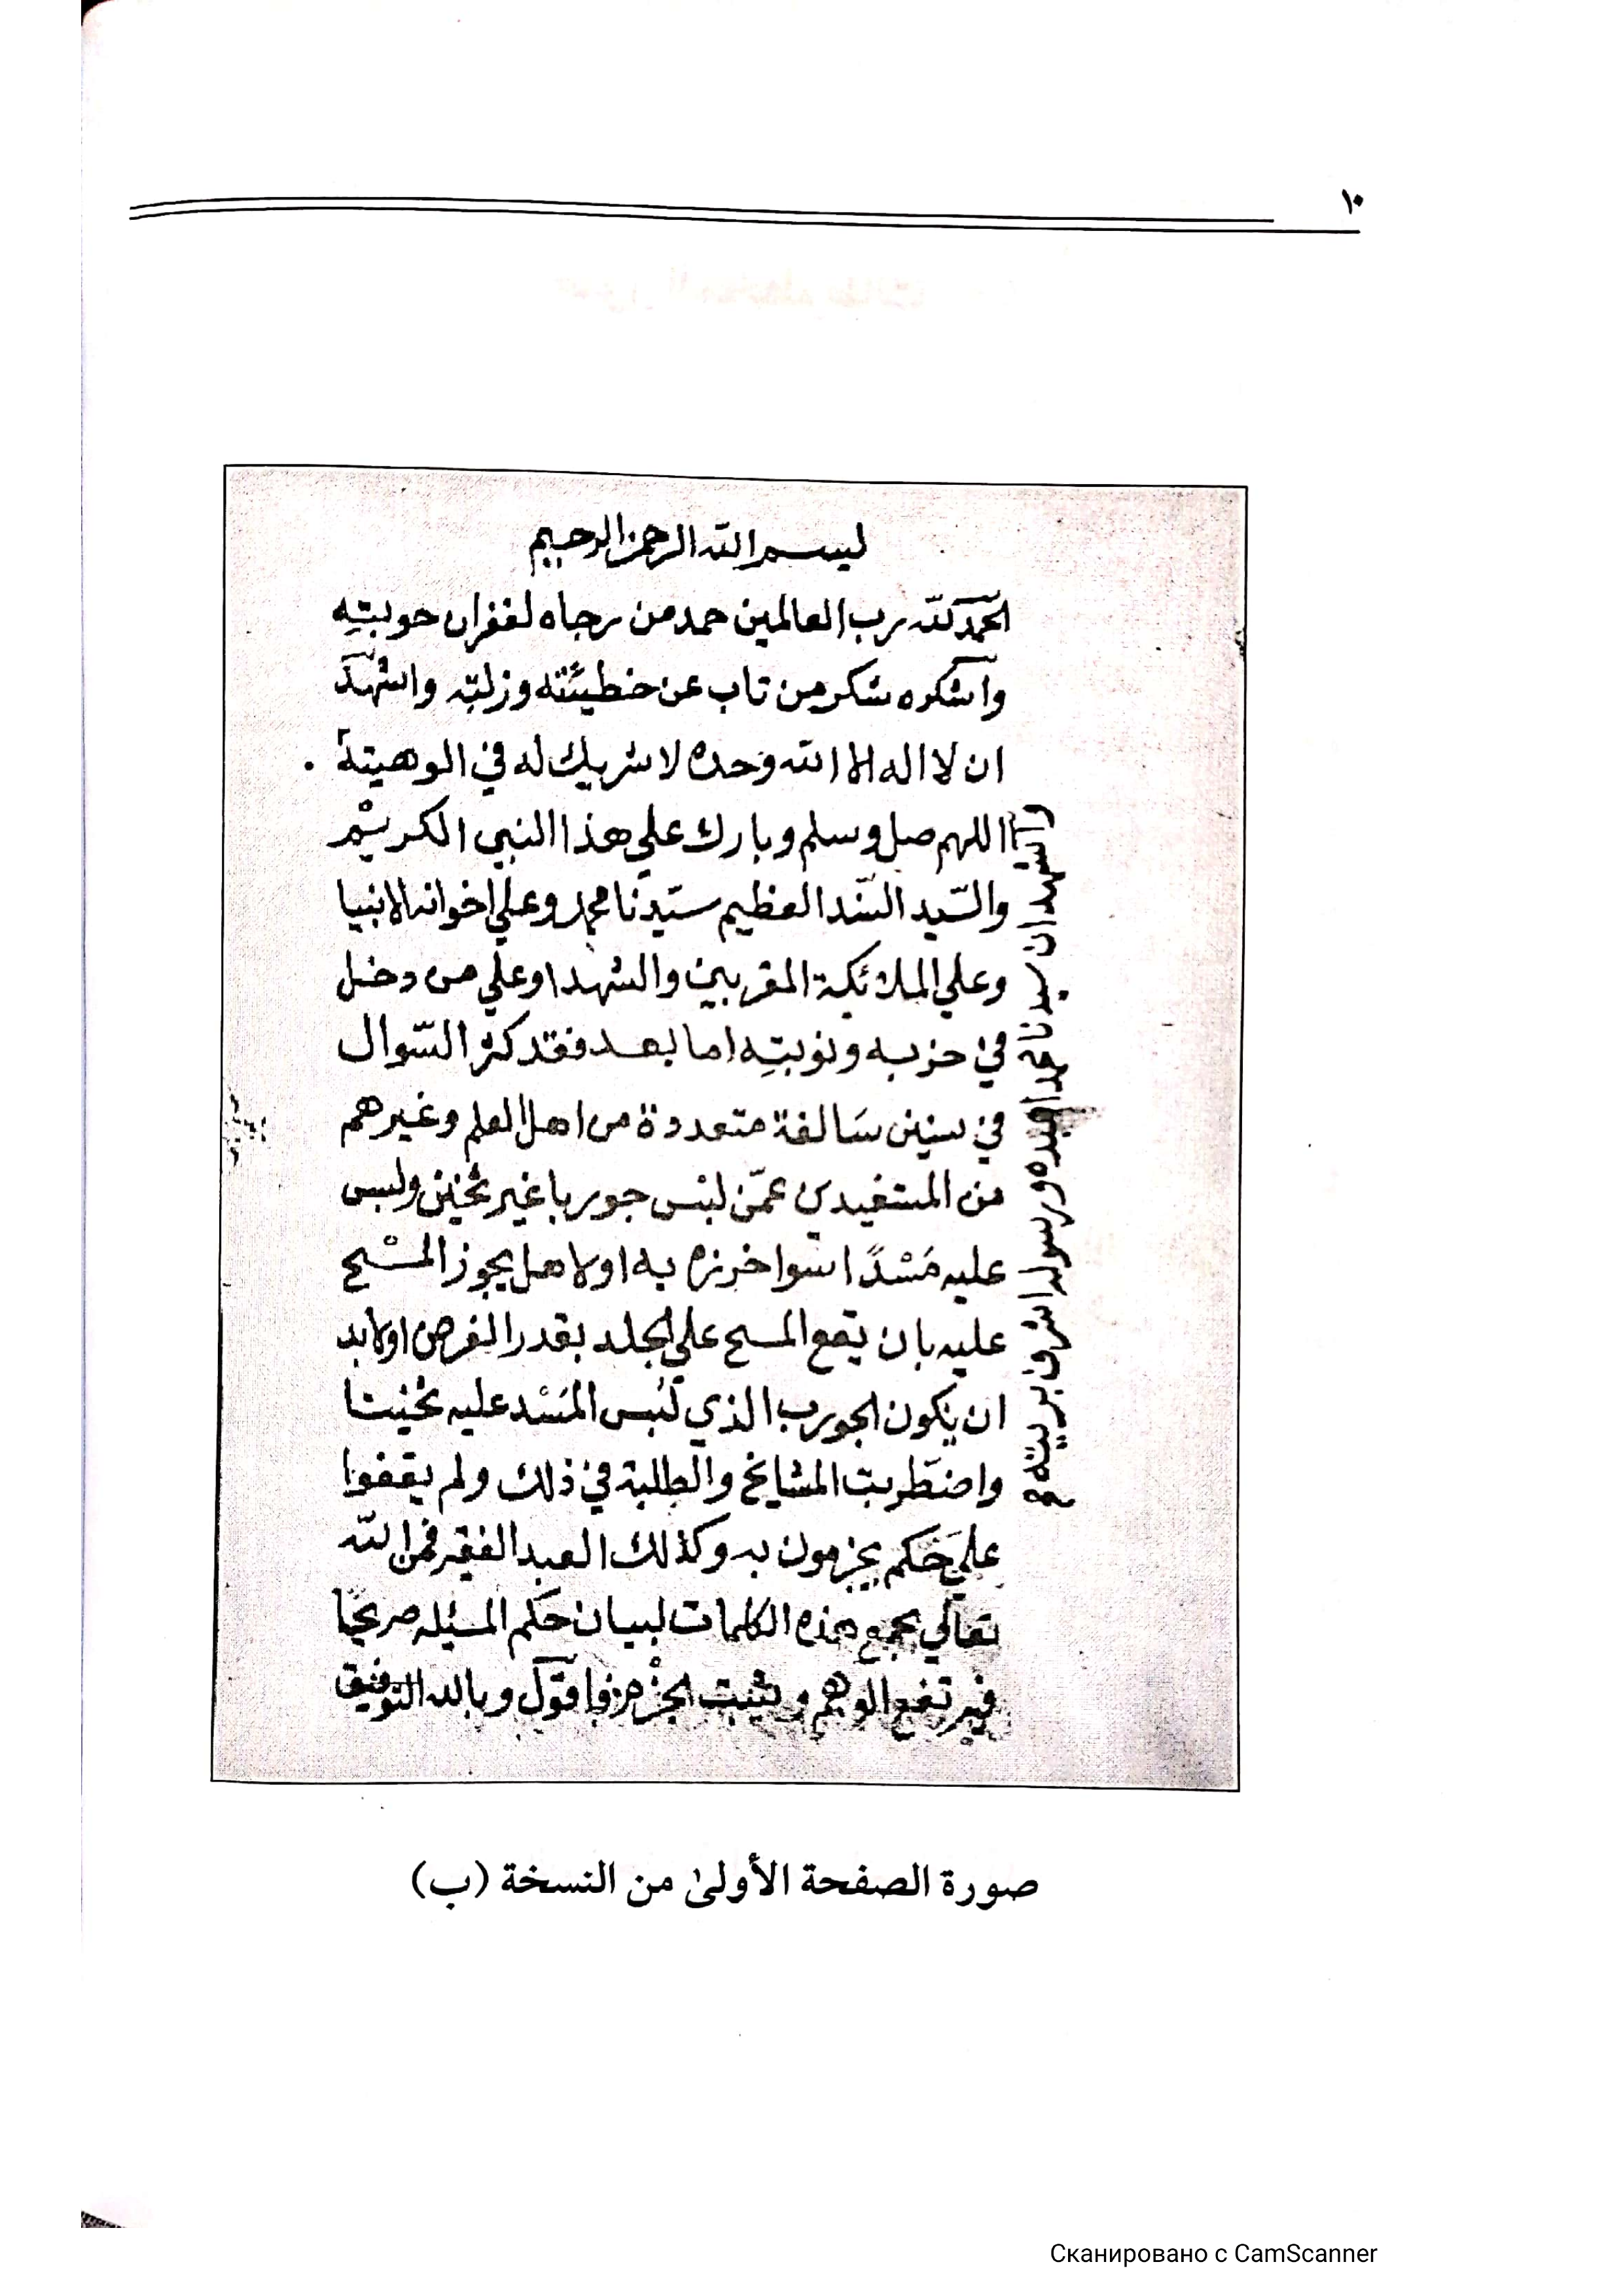 ١٠
بسم الله الرحمن الرحيم
الحمد لله رب العالمين حمد من رجاه لغفران حوبته
واشكره شكر من تاب عن خطيئته وزلته واشهد
ان لا اله الا الله وحده لا شريك له في الوهيته
اللهم صل وسلم وبارك علي هذا النبي الكريم
والسّيد السّند العظيم سيّدنا محمد وعلي اخوانه الانبيا
وعلي الملائكة المقربين والشهدا وعلي من دخل
في حزبه ونوبتِه اما بعد فقد كثر السّوال
في سنين سَالفة متعددة من اهل العلم وغيرهم
من المستفيدين عمّن لبس جوربا غير ثخين ولبس
عليه مَسْدًا سوا خرزه به اولا هل يجوز المسْح
عليه بان يقع المسح علي الجلد بقدر الفرض اولابد
ان يكون الجورب الذي لُبس المَسْد عليه ثخينا
واضطربت المشايخ والطلبة في ذلك ولم يقفوا
علي حكم يجزمون به وكذلك العبد الفقير فمن الله
تعالي بجمع هذه الكلمات لبيان حكم المسئله صريحًا
فيرتفع الوهم ويثبت الجزم فاقول وبالله التوفيق
واشهد ان سيدنا محمدا عبده ورسوله اشرف بريته
صورة الصفحة الأولىٰ من النسخة (ب)
Сканировано с CamScanner